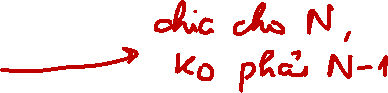 chia cho N,
ko phải N-1